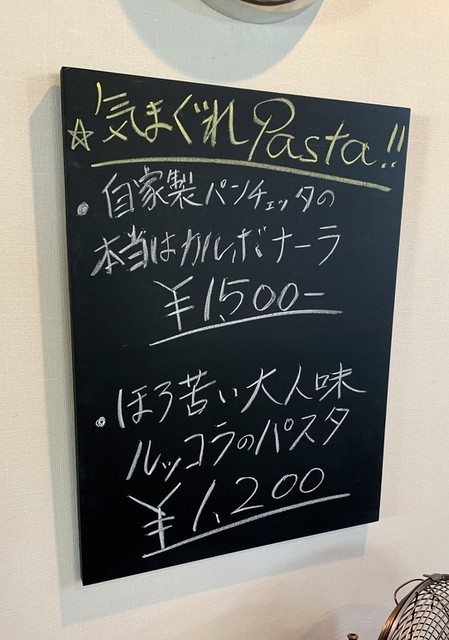 ☆気まぐれPasta!!
・自家製パンチェッタの
本当はカルボナーラ
¥1,500-
・ほろ苦い大人味
ルッコラのパスタ
¥1,200